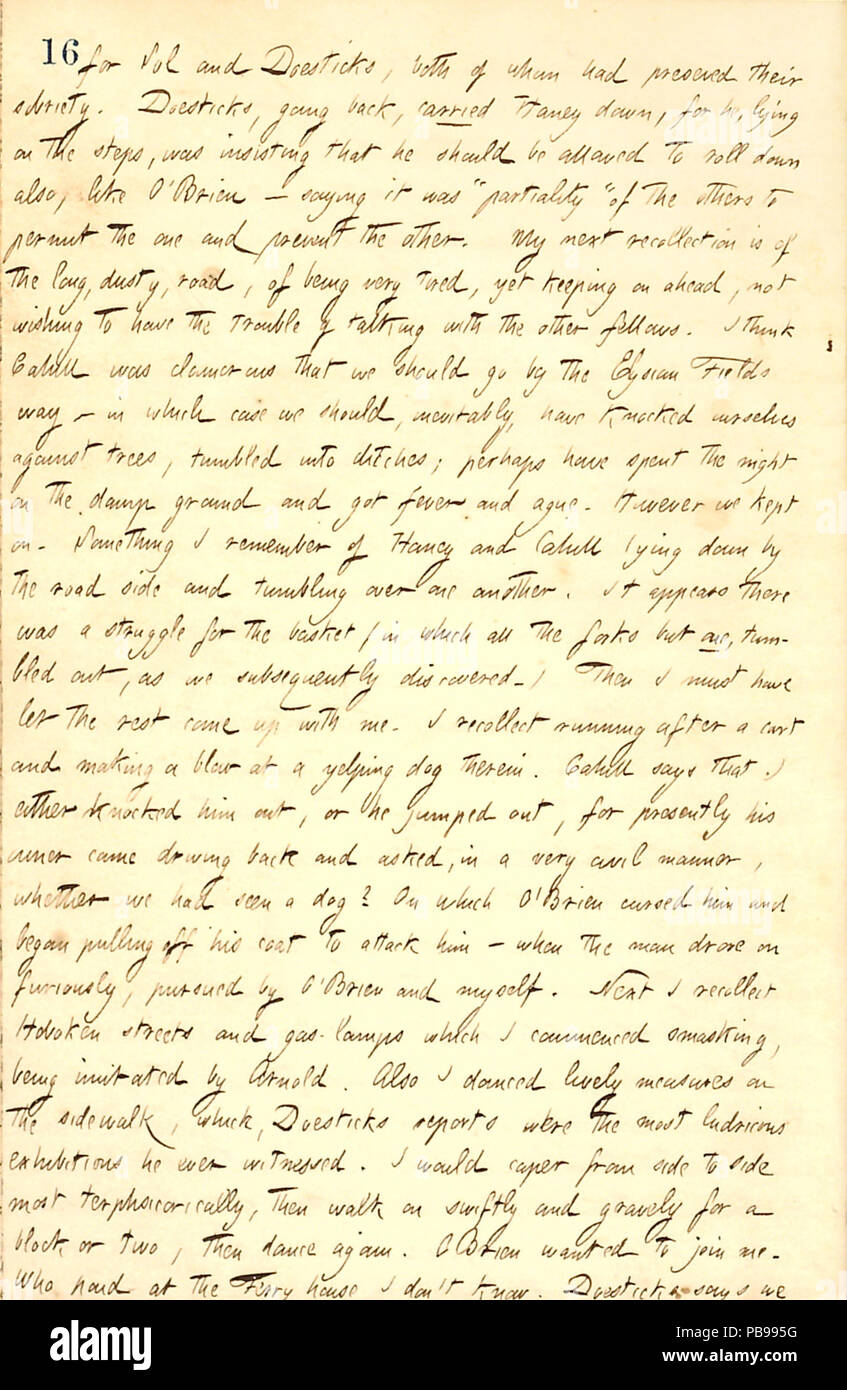 16
for Sol and Doesticks, both of whom had preserved their
sobriety. Doesticks, going back, carried Haney down, for he, lying
on the steps, was insisting that he should be allowed to roll down
also, like O'Brien — saying it was "partiality" of the others to
permit the one and prevent the other. My next recollection is of
the long, dusty, road, of being very tired, yet keeping on ahead, not
wishing to have the trouble of talking with the other fellows. I think
Cahill was clamorous that we should go by the Elysian Fields
way — in which case we should, inevitably, have knocked ourselves
against trees, tumbled into ditches; perhaps have spent the night
on the damp ground and got fever and ague. However we kept
on. Something I remember of Haney and Cahill lying down by
the road side and tumbling over one another. It appears there
was a struggle for the basket (in which all the forks but one, tum-
bled out, as we subsequently discovered.) Then I must have
let the rest come up with me. I recollect running after a cart
and making a blow at a yelping dog therein. Cahill says that I
either knocked him out, or he jumped out, for presently his
owner came driving back and asked, in a very civil manner,
whether we had seen a dog? On which O'Brien cursed him and
began pulling off his coat to attack him — when the man drove on
furiously, pursued by O'Brien and myself. Next I recollect
Hoboken streets and gas-lamps which I commenced smashing,
being imitated by Arnold. Also I danced lively measures on
the sidewalk, which, Doesticks reports were the most ludricous
exhibitions he ever witnessed. I would caper from side to side
most terphsicorically, then walk on swiftly and gravely for a
block or two, then dance again. O'Brien wanted to join me.
Who paid at the Ferry house I don't know. Doesticks says we
alamy
PB995G
www.alamy.com